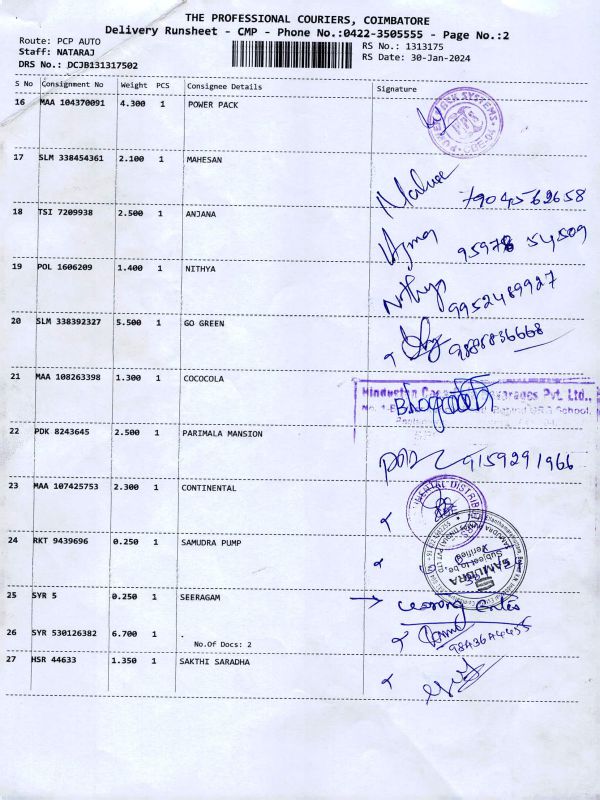 THE PROFESSIONAL COURIERS, COIMBATORE
Delivery Runsheet - CMP - Phone No.:0422-3505555 - Page No.:2
Route: PCP AUTO
Staff: NATARAJ
DRS No.: DCJB131317502
RS No.: 1313175
RS Date: 30-Jan-2024
S No Consignment No Weight PCS Consignee Details Signature
16 MAA 104370091 4.300 1 POWER PACK
17 SLM 338454361 2.100 1 MAHESAN
7904562658
18 TSI 7209938 2.500 1 ANJANA
95978 54509
19 POL 1606209 1.400 1 NITHYA
Nithya 9952489927
20 SLM 338392327 5.500 1 GO GREEN
9888836668
21 MAA 108263398 1.300 1 COCOCOLA
Hindustan Beverages Pvt. Ltd.,
School,
22 PDK 8243645 2.500 1 PARIMALA MANSION
9159291966
23 MAA 107425753 2.300 1 CONTINENTAL
24 RKT 9439696 0.250 1 SAMUDRA PUMP
Subject to be
Verified
SAMUDRA
25 SYR 5 0.250 1 SEERAGAM
26 SYR 530126382 6.700 1 .
No.Of Docs: 2
9843644455
27 HSR 44633 1.350 1 SAKTHI SARADHA